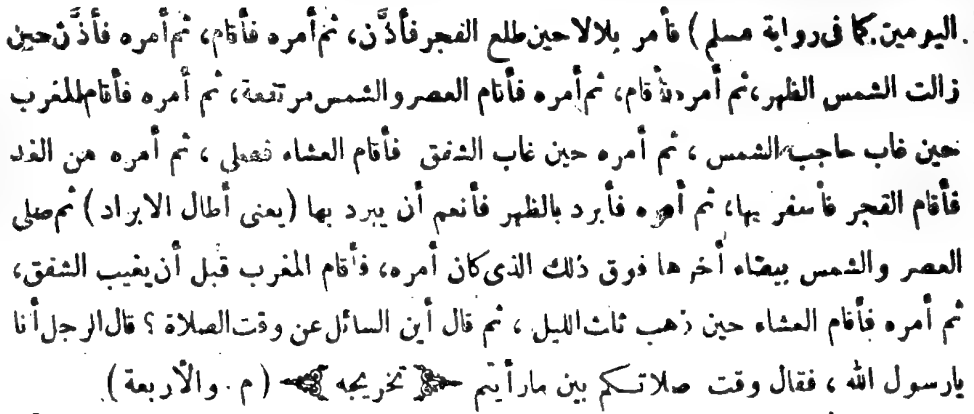 اليومين. كما فى رواية مسلم) فأمر بلالا حين طلع الفجر فأذَّن، ثم أمره فأقام، ثم أمره فأذَّن حين
زالت الشمس الظهر، ثم أمره فأقام، ثم أمره فأقام العصر والشمس مرتفعة، ثم أمره فأقام المغرب
حين غاب حاجب الشمس، ثم أمره حين غاب الشفق فأقام العشاء فصلى، ثم أمره من الغد
فأقام الفجر فأسفر بها، ثم أمره فأبرد بالظهر فأنعم أن يبرد بها (يعنى أطال الابراد) ثم صلى
العصر والشمس بيضاء أخرها فوق ذلك الذى كان أمره، فأقام المغرب قبل أن يغيب الشفق،
ثم أمره فأقام العشاء حين ذهب ثلث الليل، ثم قال أين السائل عن وقت الصلاة؟ قال الرجل أنا
يارسول الله، فقال وقت صلاتكم بين مارأيتم تخريجه (م. والأربعة)